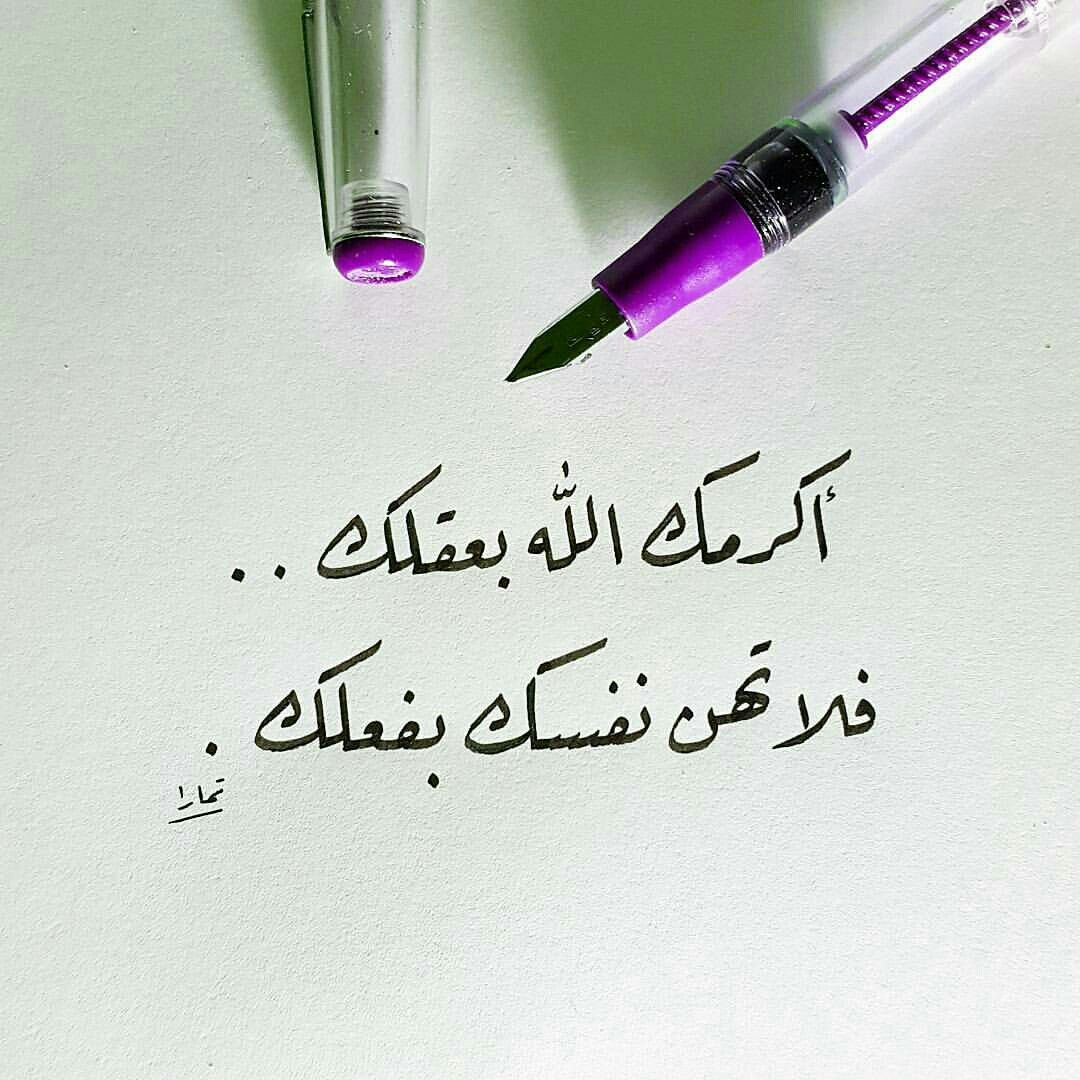 أكرمك الله بعقلك ..
فلا تهن نفسك بفعلك .
تمارا